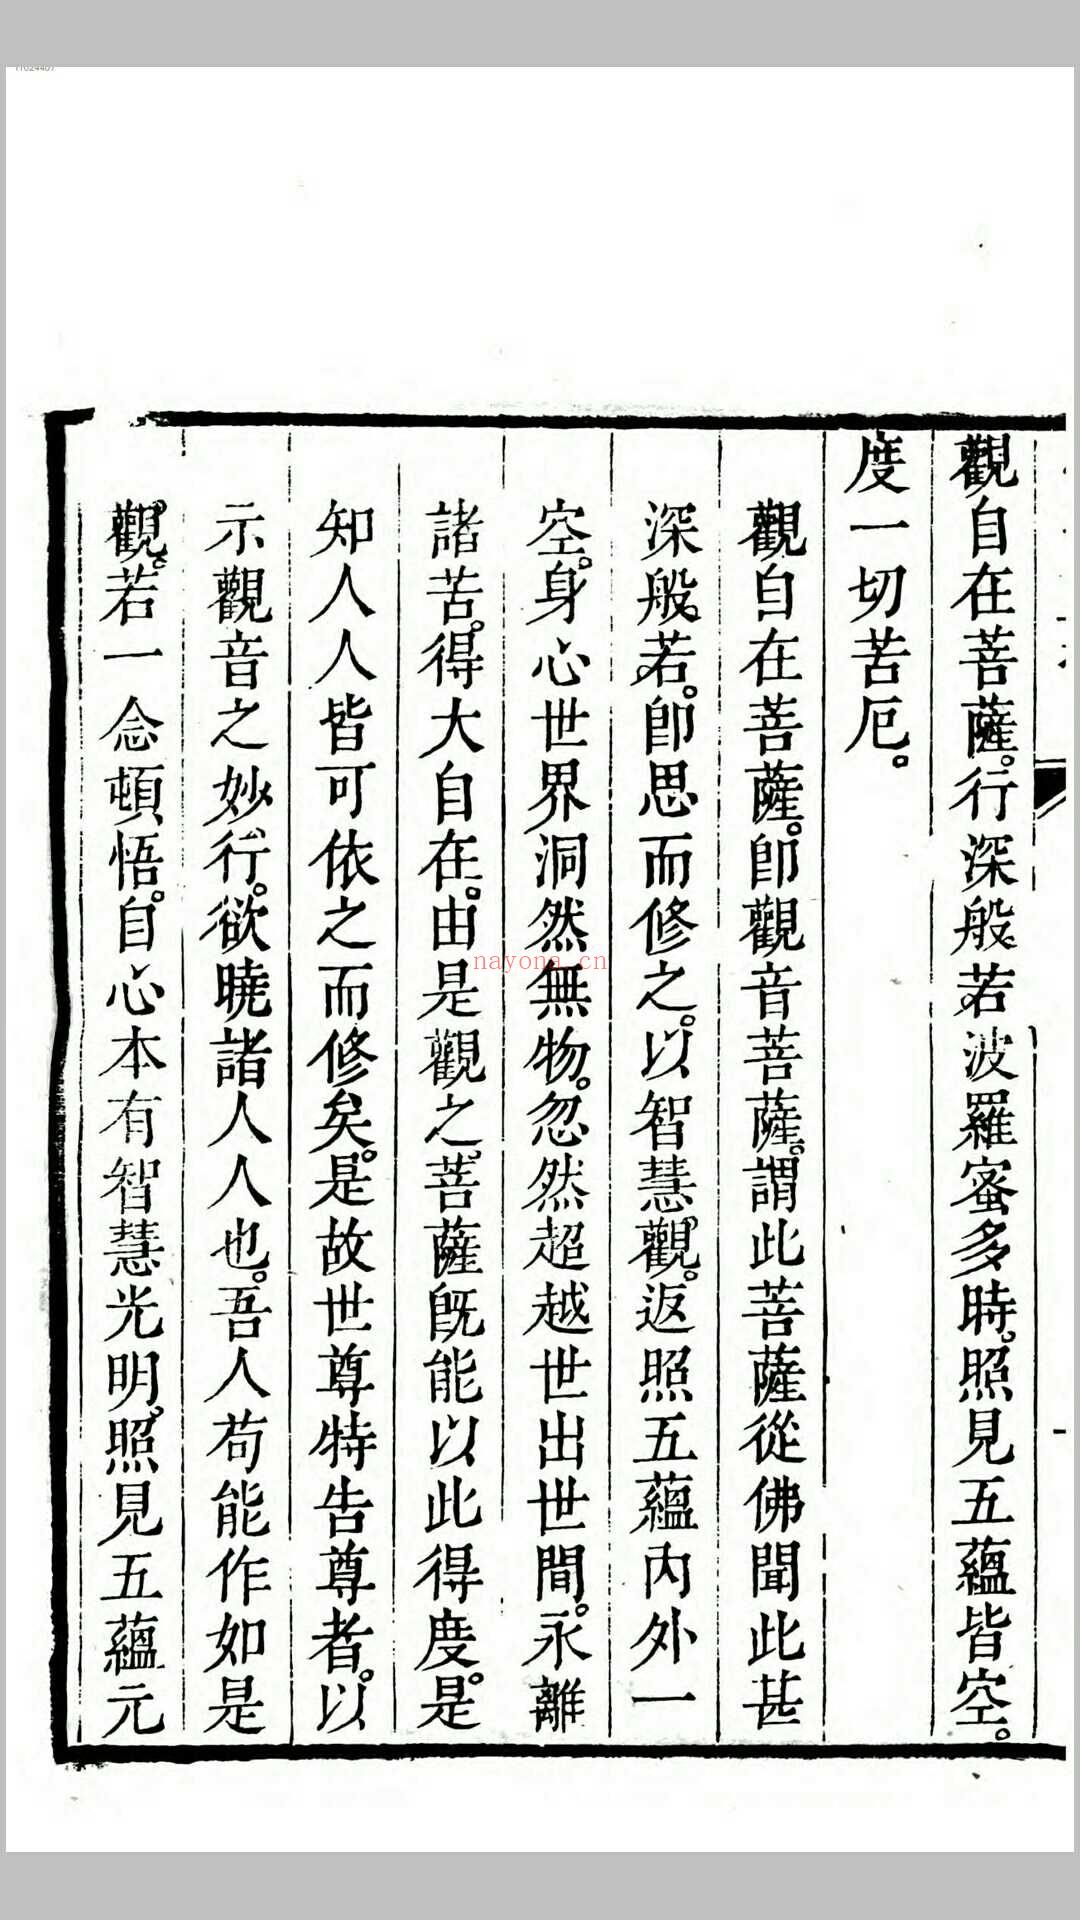 觀自在菩薩。行深般若波羅蜜多時。照見五蘊皆空。
度一切苦厄。
觀自在菩薩。卽觀音菩薩。謂此菩薩從佛聞此甚
深般若。卽思而修之。以智慧觀。返照五蘊內外一
空。身心世界洞然無物。忽然超越世出世間。永離
諸苦。得大自在。由是觀之。菩薩旣能以此得度。是
知人人皆可依之而修矣。是故世尊特告尊者。以
示觀音之妙行。欲曉諸人人也。吾人苟能作如是
觀。若一念頓悟。自心本有智慧光明。照見五蘊元
nayona.cn